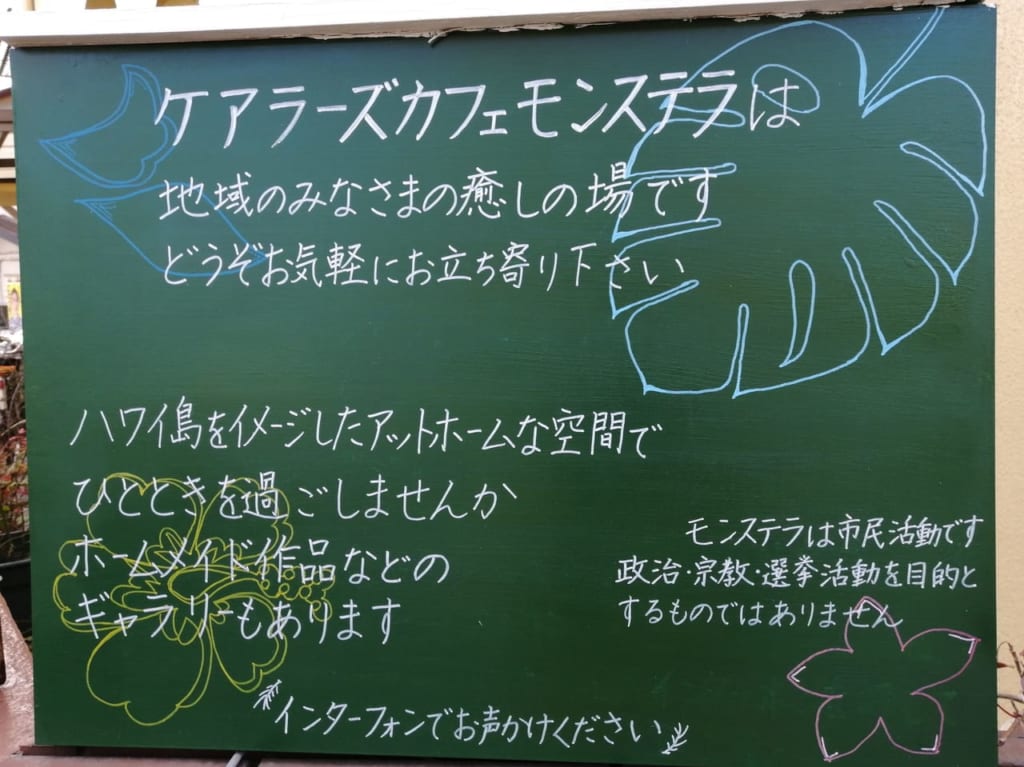 ケアラーズカフェモンステラは
地域のみなさまの癒しの場です
どうぞお気軽にお立ち寄り下さい
ハワイ島をイメージしたアットホームな空間で
ひとときを過ごしませんか
ホームメイド作品などの
ギャラリーもあります
モンステラは市民活動です
政治・宗教・選挙活動を目的と
するものではありません
インターフォンでお声かけください